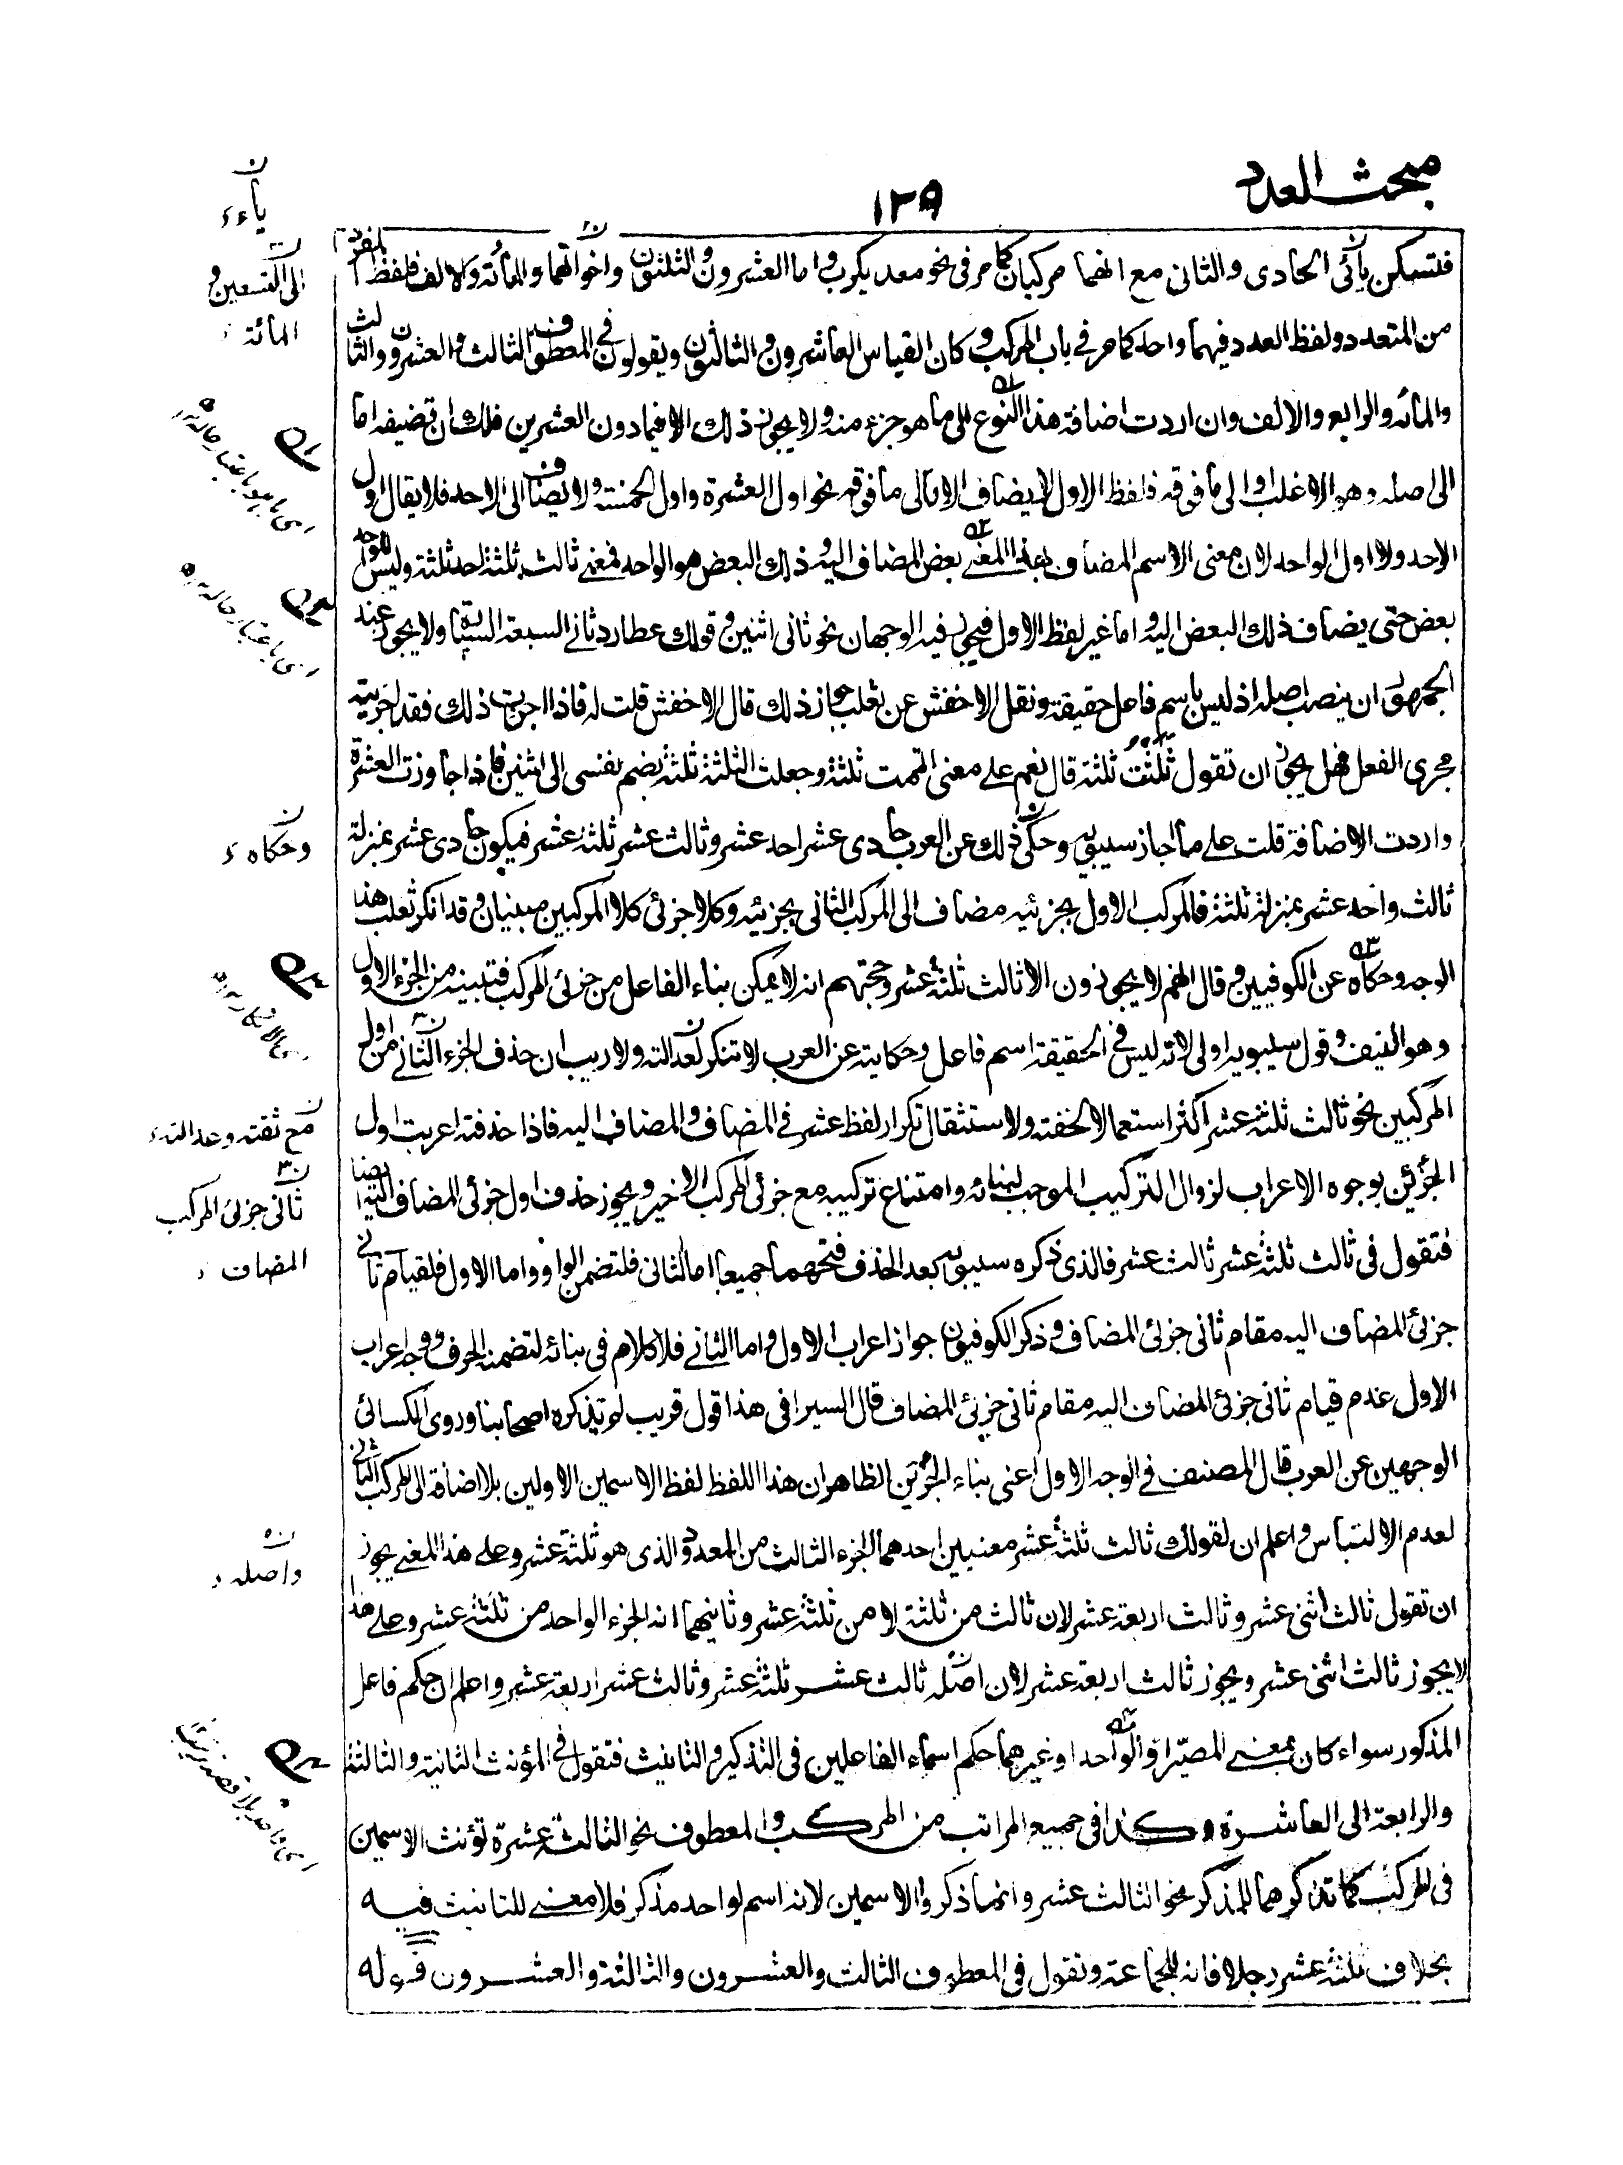 مبحث العدد
١٣٩
فتسكن يائى الحادى والثانى مع انهما مركبان كما مر فى نحو معديكرب واما العشرون والثلثون واخواتهما والمائة والالف فلفظ المفرد
من المتعدد ولفظ العدد فيهما واحد كما مر فى باب المركب وكان القياس العاشرون والثالثون ويقولون فى المعطوف الثالث والعشرون والثالث
والمائه والرابع والالف وان اردت اضافة هذا النوع الى ما هو جزء منه ولا يجوز ذلك الا فيما دون العشرين فلك ان تضيفه اما
الى اصله وهو الاغلب او الى ما فوقه فلفظ الاول لا يضاف الا الى ما فوقه نحو اول العشرة واول الخمسة ولا يضاف الى الاحد فلا يقال اول
الاحد ولا اول الواحد لان معنى الاسم المضاف بهذا المعنى بعض المضاف اليه وذلك البعض هو الواحد فمعنى ثالث ثلثة احد ثلثة وليس للواحد
بعض حتى يضاف ذلك البعض اليه واما غير لفظ الاول فيجوز فيه الوجهان نحو ثانى اثنين وقولك عطارد ثانى السبعة السيارة ولا يجوز عند
الجمهور ان ينصب اصله اذ ليس باسم فاعل حقيقة ونقل الاخفش عن ثعلب جواز ذلك قال الاخفش قلت له فاذا اجزت ذلك فقد اجريته
مجرى الفعل فهل يجوز ان تقول ثلثت ثلثة قال نعم على معنى اتممت ثلثة وجعلت الثلثة ثلثة بضم نفسى الى اثنين فاذا جاوزت العشرة
واردت الاضافة قلت على ما اجاز سيبويه وحكى ذلك عن العرب حادى عشر احد عشر وثالث عشر ثلثة عشر فيكون حادى عشر بمنزلة
ثالث واحد عشر بمنزلة ثلثة فالمركب الاول بجزئيه مضاف الى المركب الثانى بجزئيه وكلا جزئى كلا المركبين مبنيان وقد انكر ثعلب هذا
الوجه وحكاه عن الكوفيين وقال انهم لا يجيزون الا ثالث ثلثة عشر وحجتهم انه لا يمكن بناء الفاعل من جزئى المركب فتبنيه من الجزء الاول
وهو النيف وقول سيبويه اولى لانه ليس فى الحقيقة اسم فاعل وحكايته عن العرب لا تنكر لعدالته ولا ريب ان حذف الجزء الثانى من اول
المركبين نحو ثالث ثلثة عشر اكثر استعمالا لخفته ولاستثقال تكرار لفظ عشر فى المضاف والمضاف اليه فاذا حذفته اعربت اول
الجزئين بوجوه الاعراب لزوال التركيب الموجب لبنائه وامتناع تركيبه مع جزئى المركب الاخير ويجوز حذف اول جزئى المضاف اليه ايضا
فتقول فى ثالث ثلثة عشر ثالث عشر فالذى ذكره سيبويه بعد الحذف فتحهما جميعا اما الثانى فلتضمن الواو واما الاول فلقيام ثانى
جزئى المضاف اليه مقام ثانى جزئى المضاف وذكر الكوفيون جواز اعراب الاول واما الثانى فلا كلام فى بنائه لتضمنه الحرف ووجه اعراب
الاول عدم قيام ثانى جزئى المضاف اليه مقام ثانى جزئى المضاف قال السيرافى هذا قول قريب لم يذكره اصحابنا وروى الكسائى
الوجهين عن العرب قال المصنف فى الوجه الاول اعنى بناء الجزئين الظاهر ان هذا اللفظ لفظ الاسمين الاولين بلا اضافة الى المركب الثانى
لعدم الالتباس واعلم ان لقولك ثالث ثلثة عشر معنيين احدهما الجزء الثالث من المعدود الذى هو ثلثة عشر وعلى هذا المعنى يجوز
ان تقول ثالث اثنى عشر وثالث اربعة عشر لان ثالث من ثلثة لا من ثلثة عشر وثانيهما انه الجزء الواحد من ثلثة عشر وعلى هذا
لا يجوز ثالث اثنى عشر ويجوز ثالث اربعة عشر لان اصله ثالث عشر ثلثة عشر وثالث عشر اربعة عشر واعلم ان حكم فاعل
المذكور سواء كان بمعنى المصيّر او الواحد او غيرهما حكم اسماء الفاعلين فى التذكير والتانيث فتقول فى المؤنث الثانية والثالثة
والرابعة الى العاشرة وكذا فى جميع المراتب من المركب والمعطوف نحو الثالثة عشرة تؤنث الاسمين
فى المركب كما تذكرهما للمذكر نحو الثالث عشر وانما ذكروا الاسمين لانه اسم لواحد مذكر فلا معنى للتانيث فيه
بخلاف ثلثة عشر رجلا فانه للجماعة وتقول فى المعطوف الثالث والعشرون والثالثة والعشرون قوله
ياء
الى التسعين و
المائة
اى ما هو باعتبار حاله
اى باعتبار حاله
وحكاه
مع ثقته وعدالته
ثانى جزئى المركب
المضاف
واصله